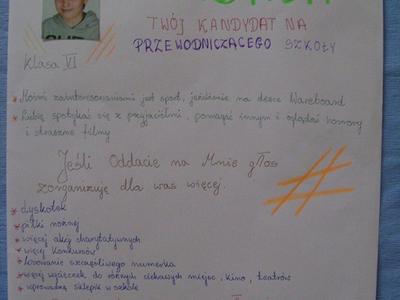 TWÓJ KANDYDAT NA
PRZEWODNICZĄCEGO SZKOŁY
Klasa VI
* Moimi zainteresowaniami jest sport, jeżdżenie na desce Waveboard
* Lubię spotykać się z przyjaciółmi, pomagać innym i oglądać horrory
i straszne filmy
Jeśli Oddacie na Mnie głos
zorganizuję dla was więcej.
* dyskotek
* piłki nożnej
* więcej akcji charytatywnych
* więcej konkursów
* losowanie szczęśliwego numerka
* więcej wycieczek do różnych ciekawych miejsc, kino, teatrów
* wprowadzę sklepik w szkole